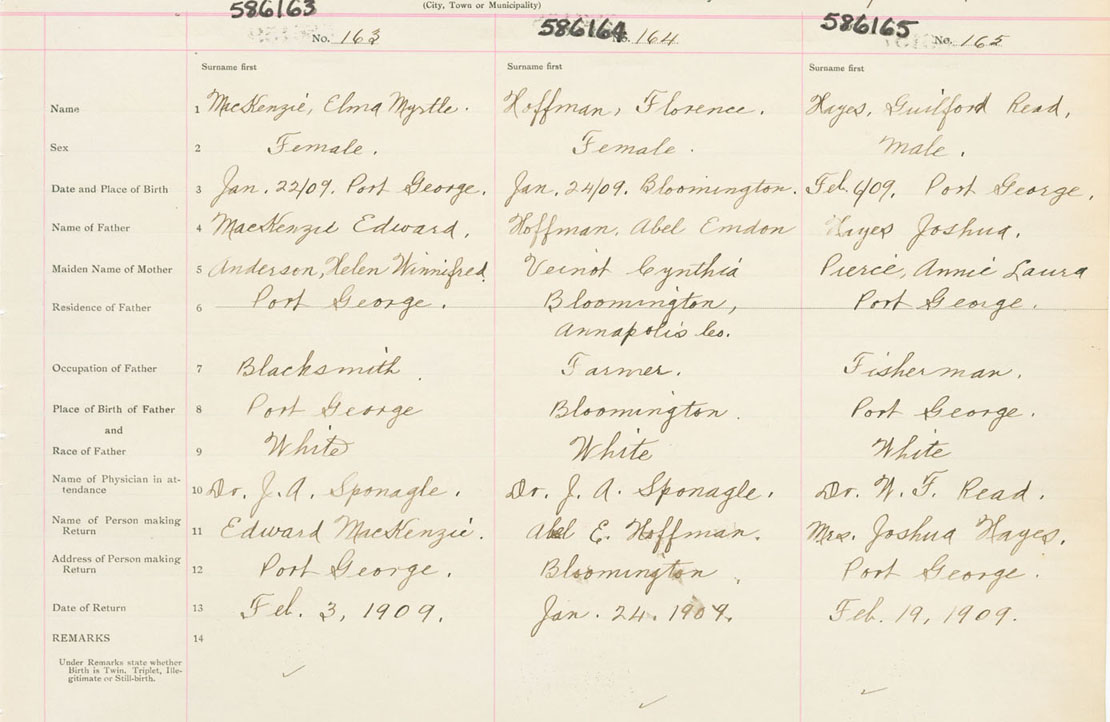 (City, Town or Municipality)
586163 586164 586165
No. 163 No. 164 No. 165
Surname first Surname first Surname first
Name 1 MacKenzie, Elma Myrtle. Hoffman, Florence. Hayes, Guilford Read,
Sex 2 Female. Female. Male.
Date and Place of Birth 3 Jan. 22/09. Port George. Jan. 24/09. Bloomington. Feb. 6/09, Port George,
Name of Father 4 MacKenzie Edward, Hoffman, Abel Emdon Hayes Joshua,
Maiden Name of Mother 5 Anderson, Helen Winnifred. Veinot Cynthia Pierce, Annie Laura
Residence of Father 6 Port George. Bloomington, Port George.
Annapolis Co.
Occupation of Father 7 Blacksmith. Farmer. Fisherman.
Place of Birth of Father 8 Port George Bloomington. Port George.
and
Race of Father 9 White White White
Name of Physician in at-
tendance 10 Dr. J. A. Sponagle. Dr. J. A. Sponagle. Dr. W. F. Read.
Name of Person making
Return 11 Edward MacKenzie. Abel E. Hoffman. Mrs. Joshua Hayes.
Address of Person making
Return 12 Port George. Bloomington. Port George.
Date of Return 13 Feb. 3, 1909. Jan. 24. 1909. Feb. 19, 1909.
REMARKS 14
Under Remarks state whether
Birth is Twin, Triplet, Ille-
gitimate or Still-birth.